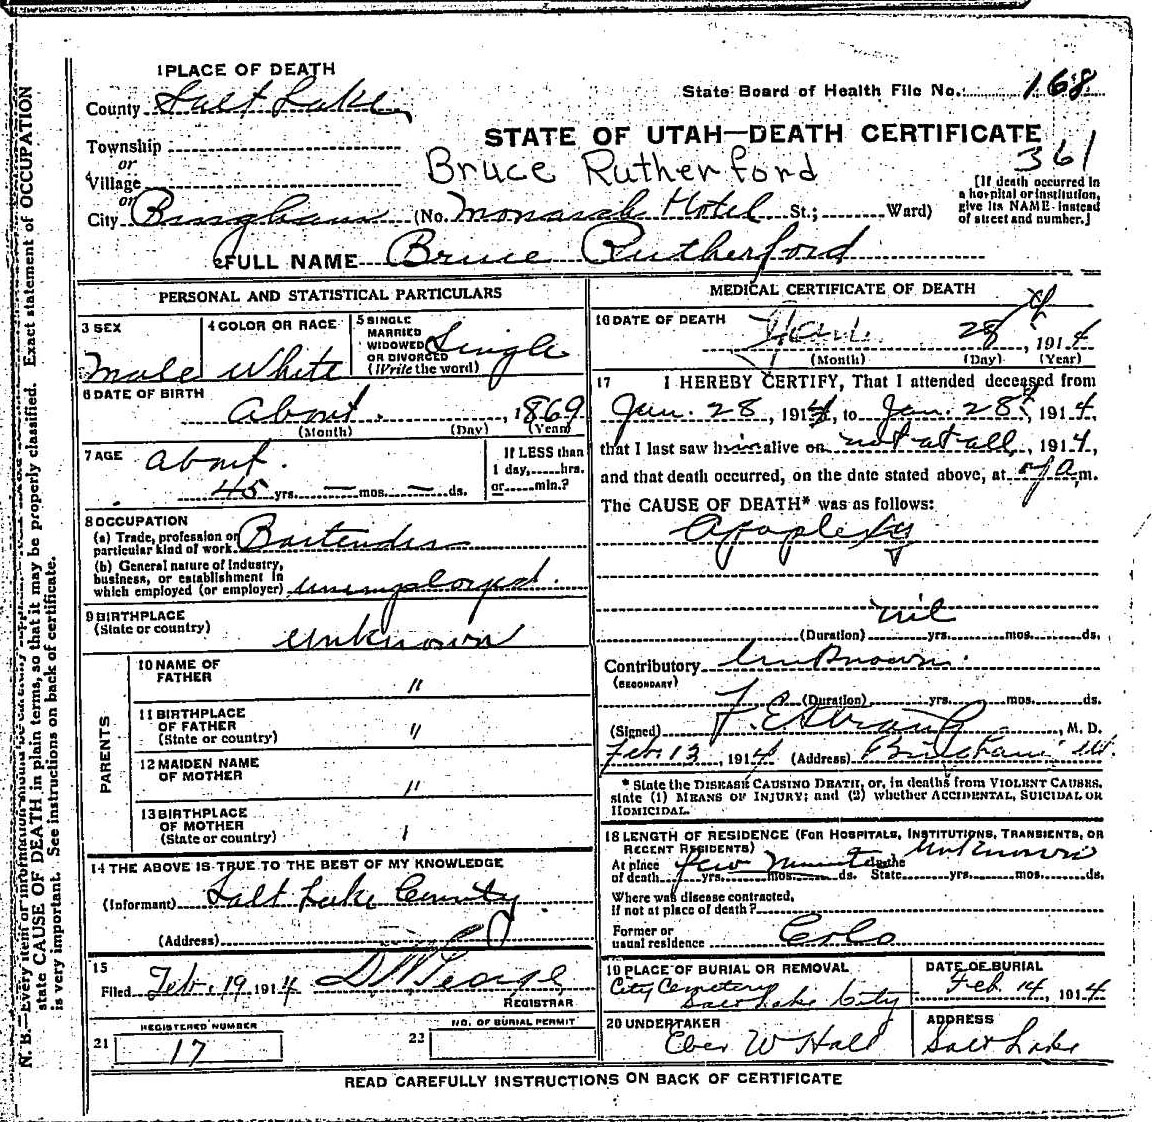 1 PLACE OF DEATH
County Salt Lake
State Board of Health File No. 168
Township
or
Village
or
City Bingham (No. Monarch Hotel St.; Ward)
STATE OF UTAH—DEATH CERTIFICATE
361
Bruce Rutherford
[If death occurred in
a hospital or institution,
give its NAME instead
of street and number.]
2 FULL NAME Bruce Rutherford
PERSONAL AND STATISTICAL PARTICULARS
3 SEX
Male
4 COLOR OR RACE
White
5 SINGLE
MARRIED
WIDOWED
OR DIVORCED
(Write the word)
Single
6 DATE OF BIRTH
About , 1869
(Month) (Day) (Year)
7 AGE
about
45 yrs. — mos. — ds.
If LESS than
1 day, hrs.
or min.?
8 OCCUPATION
(a) Trade, profession or
particular kind of work Bartender
(b) General nature of Industry,
business, or establishment in
which employed (or employer) unemployed.
9 BIRTHPLACE
(State or country)
Unknown
PARENTS
10 NAME OF
FATHER
"
11 BIRTHPLACE
OF FATHER
(State or country)
"
12 MAIDEN NAME
OF MOTHER
"
13 BIRTHPLACE
OF MOTHER
(State or country)
14 THE ABOVE IS TRUE TO THE BEST OF MY KNOWLEDGE
(Informant) Salt Lake County
(Address)
15
Filed Feb. 19 1914
REGISTRAR
REGISTERED NUMBER
21 17
NO. OF BURIAL PERMIT
22
MEDICAL CERTIFICATE OF DEATH
16 DATE OF DEATH
Jan. 28 , 1914
(Month) (Day) (Year)
17 I HEREBY CERTIFY, That I attended deceased from
Jan. 28, 1914, to Jan. 28, 1914,
that I last saw him alive on not at all, 1914,
and that death occurred, on the date stated above, at 7 a.m.
The CAUSE OF DEATH* was as follows:
Apoplexy
nil
(Duration) yrs. mos. ds.
Contributory Unknown.
(SECONDARY)
(Duration) yrs. mos. ds.
(Signed) M. D.
Feb 13, 1914 (Address) Bingham Ut.
* State the DISEASE CAUSING DEATH, or, in deaths from VIOLENT CAUSES,
state (1) MEANS OF INJURY; and (2) whether ACCIDENTAL, SUICIDAL OR
HOMICIDAL.
18 LENGTH OF RESIDENCE (FOR HOSPITALS, INSTITUTIONS, TRANSIENTS, OR
RECENT RESIDENTS)
At place
of death few minutes yrs. mos. ds. In the State Unknown yrs. mos. ds.
Where was disease contracted,
if not at place of death?
Former or
usual residence Colo
19 PLACE OF BURIAL OR REMOVAL
City Cemetery
Salt Lake City
DATE OF BURIAL
Feb. 14, 1914
20 UNDERTAKER
Eber W Hall
ADDRESS
Salt Lake
READ CAREFULLY INSTRUCTIONS ON BACK OF CERTIFICATE
N. B.—Every item of information should be carefully
state CAUSE OF DEATH in plain terms, so that it may be properly classified. Exact statement of OCCUPATION
is very important. See instructions on back of certificate.